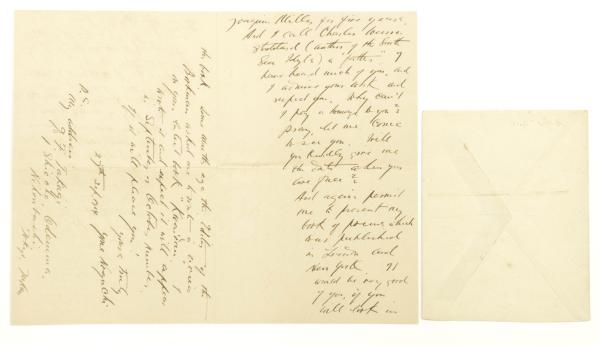 Joaquin Miller for five years.
And I call Charles Warren
Stoddard (author of the South
Sea Idyls) a "father". I
have heard much of you, and
I admire your work and
respect you. Why can't
I pay a homage to you?
Pray, let me come
to see you. Will
you kindly give me
the date when you
are free?
And again permit
me to present my
book of poems which
was published
in London and
New York. It
would be very good
of you, if you
will look in
the book. Some month ago the Editor of the
Bookman asked me to write a review
on your latest book "Kwaidan". I
wrote it and expect it will appear
in September or October number.
It will please you,
yours truly
Yone Noguchi
27th Sep 1904
P.S.
My address
1 Shicho
Tokyo